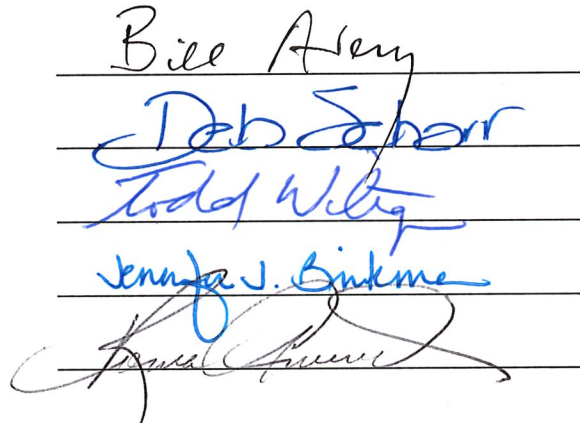 Bill Avery
Deb Schorr
Todd Wiltgen
Jennifer J. Brinkman